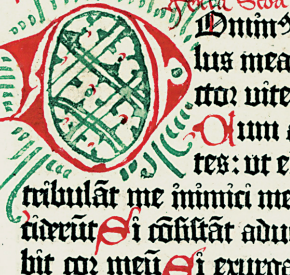 Dñinꝰ
lus mea
ctor vite
Dum a
tes: vt e
tribulãt me inimici me
ciderũt Si cõsistãt adu
bit cor meũ Si exurga